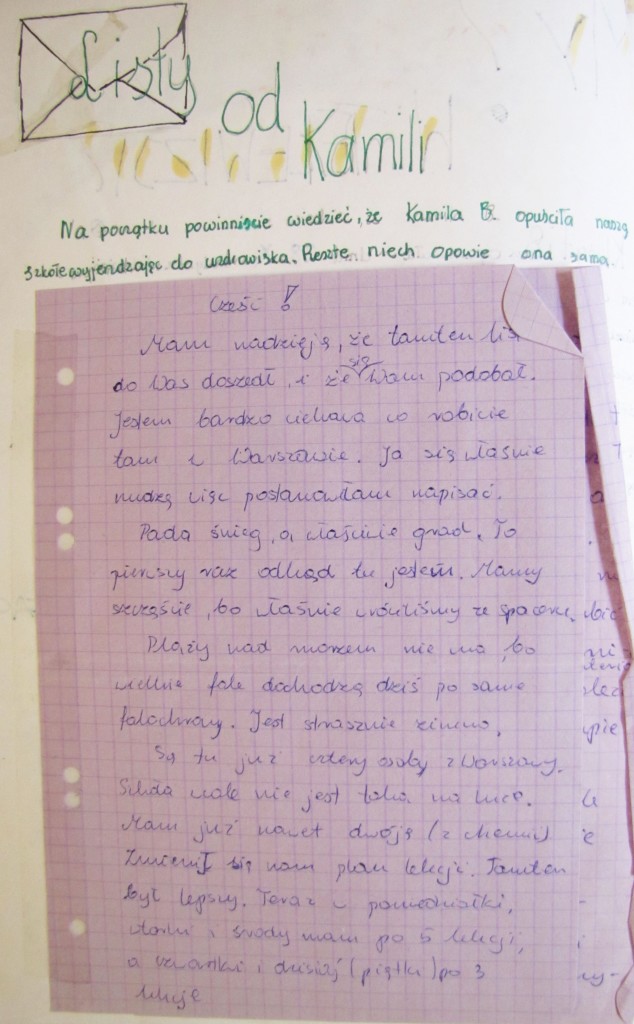 Listy
od
Kamili
Na początku powinniście wiedzieć, że Kamila B. opuściła naszą
szkołę wyjeżdżając do uzdrowiska. Resztę niech opowie ona sama.
Cześć!
Mam nadzieję, że tamten lis
do Was doszedł, i że się Wam podobał.
Jestem bardzo ciekawa co robicie
tam w Warszawie. Ja się właśnie
nudzę więc postanowiłam napisać.
Pada śnieg, a właściwie grad. To
pierwszy raz odkąd tu jestem. Mamy
szczęście, bo właśnie wróciliśmy ze spaceru.
Plaży nad morzem nie ma, bo
wielkie fale dochodzą dziś po same
falochrony. Jest strasznie zimno.
Są tu już cztery osoby z Warszawy.
Szkoła wcale nie jest taka na luce.
Mam już nawet dwóję (z chemii)
Zmienił się nam plan lekcji. Tamten
był lepszy. Teraz w poniedziałki,
wtorki i środy mam po 5 lekcji,
a czwartki i dzisiaj (piątki) po 3
lekcje